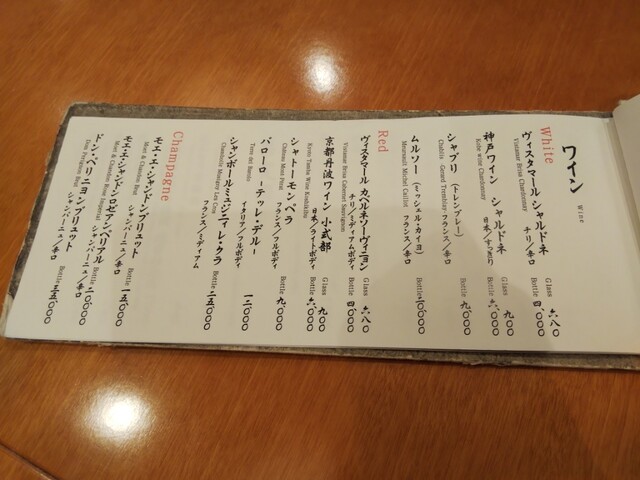 ワイン
Wine
White
ヴィスタマール シャルドネ
Vistamar Brisa Chardonnay
チリ／辛口
Glass 六八〇
Bottle 四、〇〇〇
神戸ワイン シャルドネ
Kobe wine Chardonnay
日本／すっきり
Glass 九〇〇
Bottle 六、〇〇〇
シャブリ（トレンブレー）
Chablis Gerard Tremblay
フランス／辛口
Bottle 九、〇〇〇
ムルソー（ミッシェル・カイヨ）
Meursault Michel Caillot
フランス／辛口
Bottle 二〇、〇〇〇
Red
ヴィスタマール カベルネソーヴィニヨン
Vistamar Brisa Cabernet Sauvignon
チリ／ミディアムボディ
Glass 六八〇
Bottle 四、〇〇〇
京都丹波ワイン 小式部
Kyoto Tamba Wine Koshikibu
日本／ライトボディ
Glass 九〇〇
Bottle 六、〇〇〇
シャトーモンペラ
Château Mont Perat
フランス／フルボディ
Bottle 九、〇〇〇
バローロ ーテッレ・デルー
Terre del Barolo
イタリア／フルボディ
一二、〇〇〇
シャンボールミュジニイ レ・クラ
Chambolle Musigny Les Cras
フランス／ミディアム
Bottle 二五、〇〇〇
Champagne
モエ・エ・シャンドンブリュット
Moët & Chandon Brut
シャンパーニュ／辛口
Bottle 一五、〇〇〇
モエ・エ・シャンドンロゼアンペリアル
Moët & Chandon Rosé Impérial
シャンパーニュ／辛口
Bottle 二〇、〇〇〇
ドン・ペリニヨンブリュット
Dom Pérignon Brut
シャンパーニュ／辛口
Bottle 三五、〇〇〇